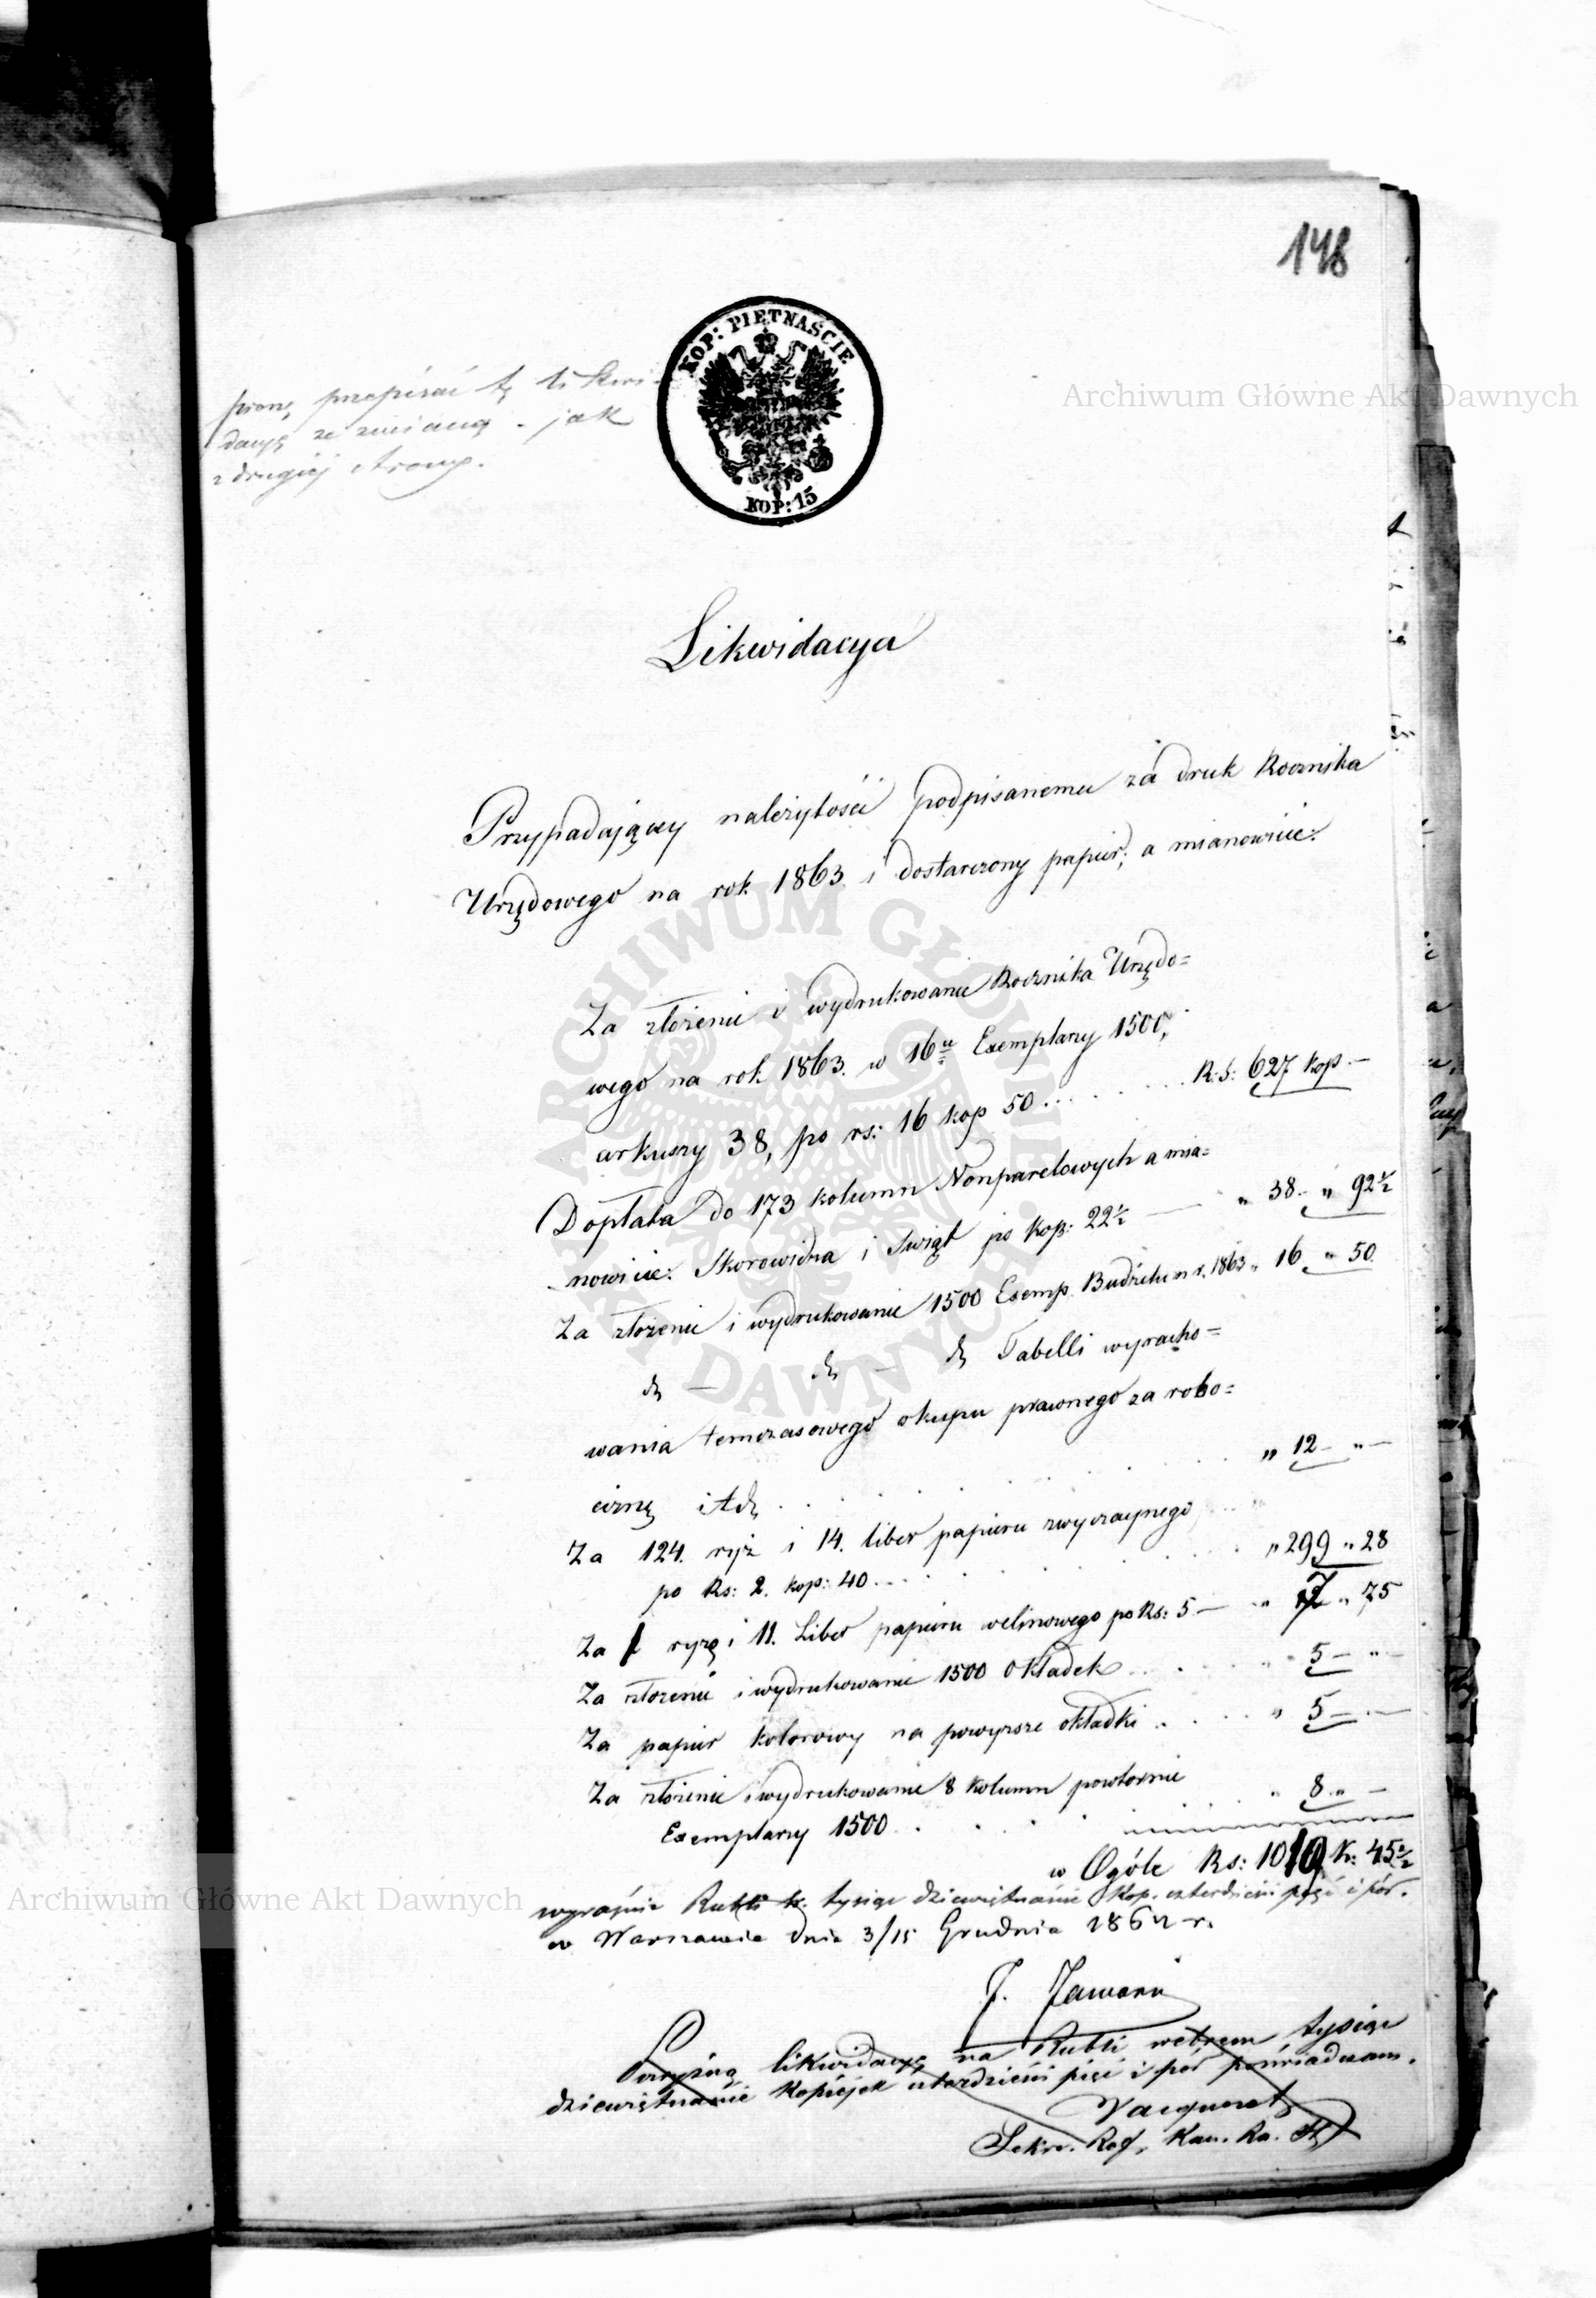 148
KOP: PIĘTNAŚCIE
KOP: 15
proszę przepisać tę likwi-
dacyę ze zmianą - jak
z drugiej strony.
Archiwum Główne Akt Dawnych
Likwidacya
Przypadającej należytości podpisanemu za druk Rocznika
Urzędowego na rok 1863 i dostarczony papier; a mianowicie:
ARCHIWUM GŁÓWNE AKT DAWNYCH
Za złożenie i wydrukowanie Rocznika Urzędo=
wego na rok 1863. w 16ce Exemplarzy 1500,
arkuszy 38, po rs: 16 kop 50 . . . . . . . R: S: 627 kop —
Dopłata do 173 kolumn Nonparelowych a mia=
nowicie: Skorowidza i Swiąt po kop: 22½ — „ 38 „ 92½
Za złożenie i wydrukowanie 1500 Exemp. Budżetu n r. 1863 „ 16 „ 50
dtto — dtto — dtto Tabelli wyracho=
wania temczasowego okupu prawnego za robo=
ciznę itd. . . . . . . . „ 12 — „ —
Za 124. ryz i 14. liber papieru zwyczajnego
po Rs: 2. kop: 40 . . . . . . . „ 299 „ 28
Za 1 ryzę i 11. Liber papieru velinowego po Rs: 5 — „ 7 „ 75
Za złożenie i wydrukowanie 1500 okładek . . . . „ 5 — „ —
Za papier kolorowy na powyższe okładki . . . . „ 5 — „ —
Za złożenie i wydrukowanie 8 kolumn powtórnie
Exemplarzy 1500 . . . . . . „ 8 „ —
w Ogóle Rs: 1019 k: 45½
wyraźnie Rubli sr. tysiąc dziewiętnaście kop. czterdzieści pięć i pół.
w Warszawie dnia 3/15 Grudnia 1862 r.
J. Jaworski
Powyższą likwidacyę na Rubli srebrem tysiąc
dziewiętnaście kopiejek czterdzieści pięć i pół poświadczam.
Sekr. Ref. Kan. Ra. St.
Archiwum Główne Akt Dawnych